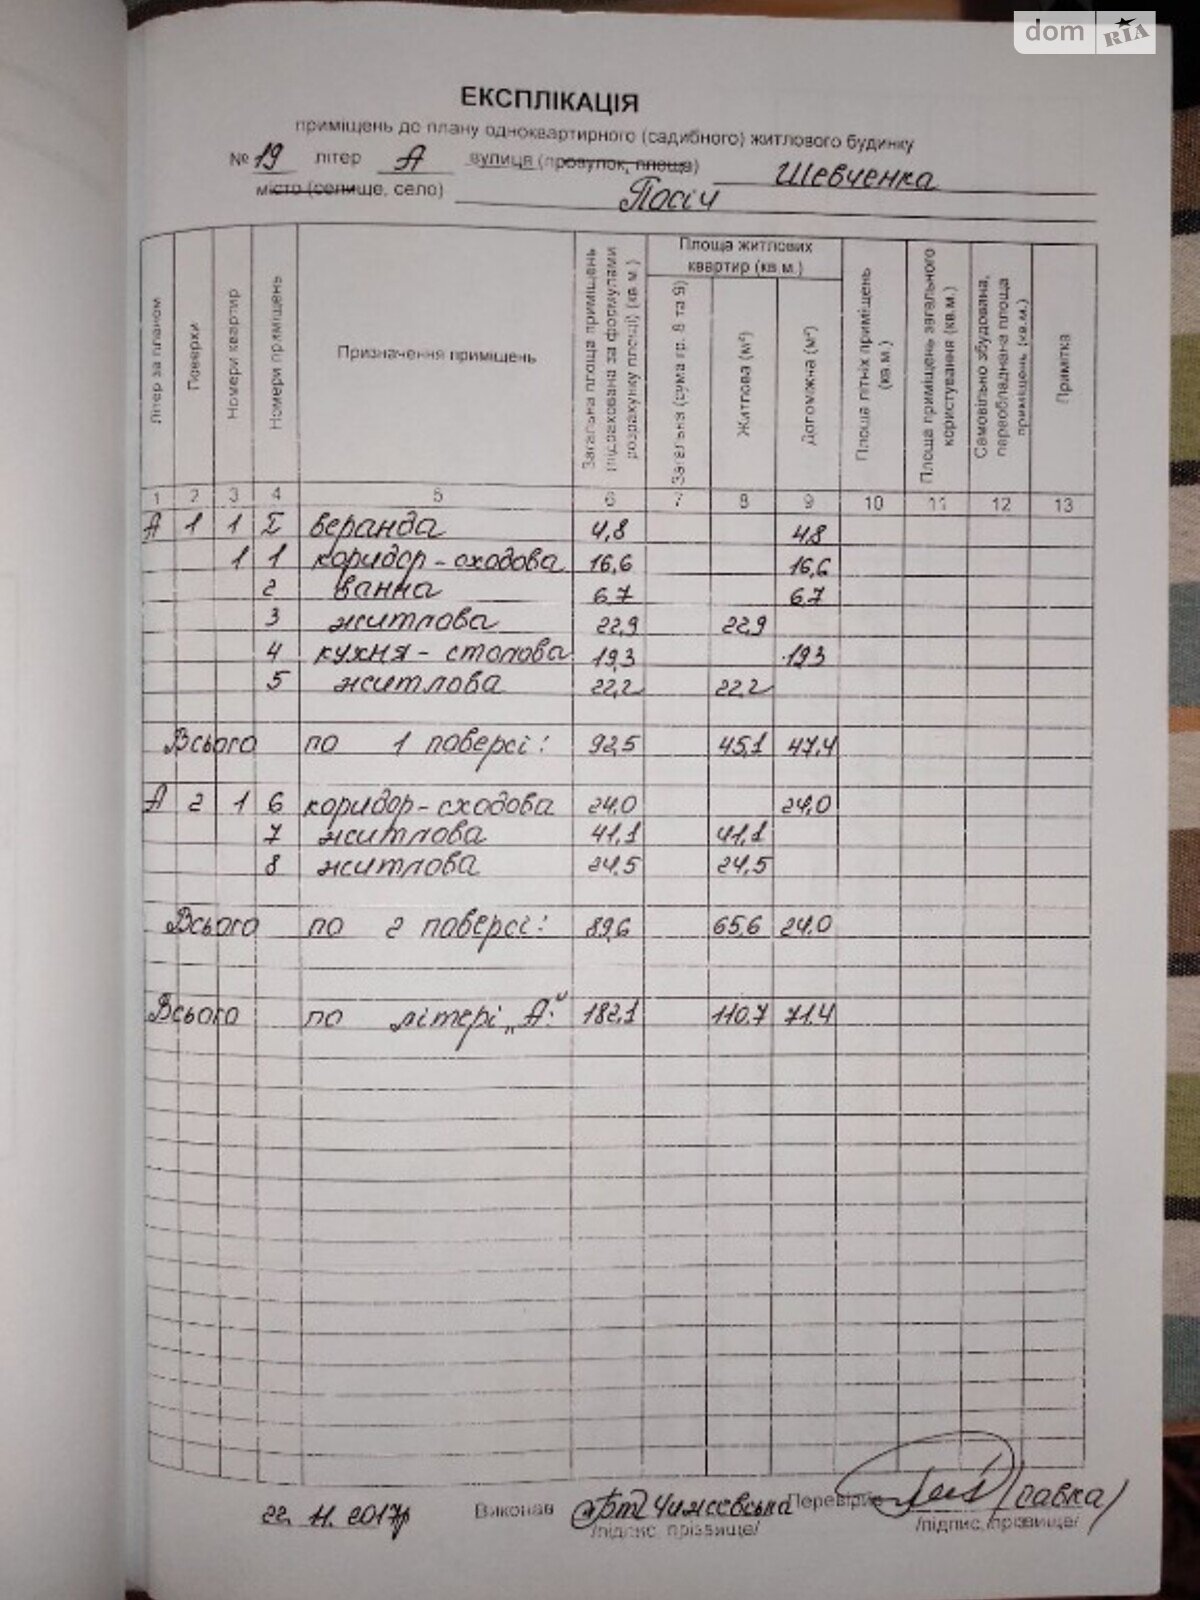 dom RIA
ЕКСПЛІКАЦІЯ
приміщень до плану одноквартирного (садибного) житлового будинку
№ 19 літер А вулиця (провулок, площа) Шевченка
місто (селище, село) Посіч
Літер за планом
Поверхи
Номери квартир
Номери приміщень
Призначення приміщень
Загальна площа приміщень (підрахована за формулами розрахунку площі) (кв.м.)
Площа житлових квартир (кв.м.)
Загальна (сума гр. 8 та 9)
Житлова (м²)
Допоміжна (м²)
Площа літніх приміщень (кв.м.)
Площа приміщень загального користування (кв.м.)
Самовільно збудована, переобладнана площа приміщень (кв.м.)
Примітка
1 2 3 4 5 6 7 8 9 10 11 12 13
А 1 1 I веранда 4,8 4,8
1 1 коридор-сходова 16,6 16,6
2 ванна 6,7 6,7
3 житлова 22,9 22,9
4 кухня - столова 19,3 19,3
5 житлова 22,2 22,2
Всього по 1 поверсі: 92,5 45,1 47,4
А 2 1 6 коридор-сходова 24,0 24,0
7 житлова 41,1 41,1
8 житлова 24,5 24,5
Всього по 2 поверсі: 89,6 65,6 24,0
Всього по літері „А": 182,1 110,7 71,4
22. 11. 2017р Виконав Чижевська Перевірив /Савка/
/підпис, прізвище/ /підпис, прізвище/